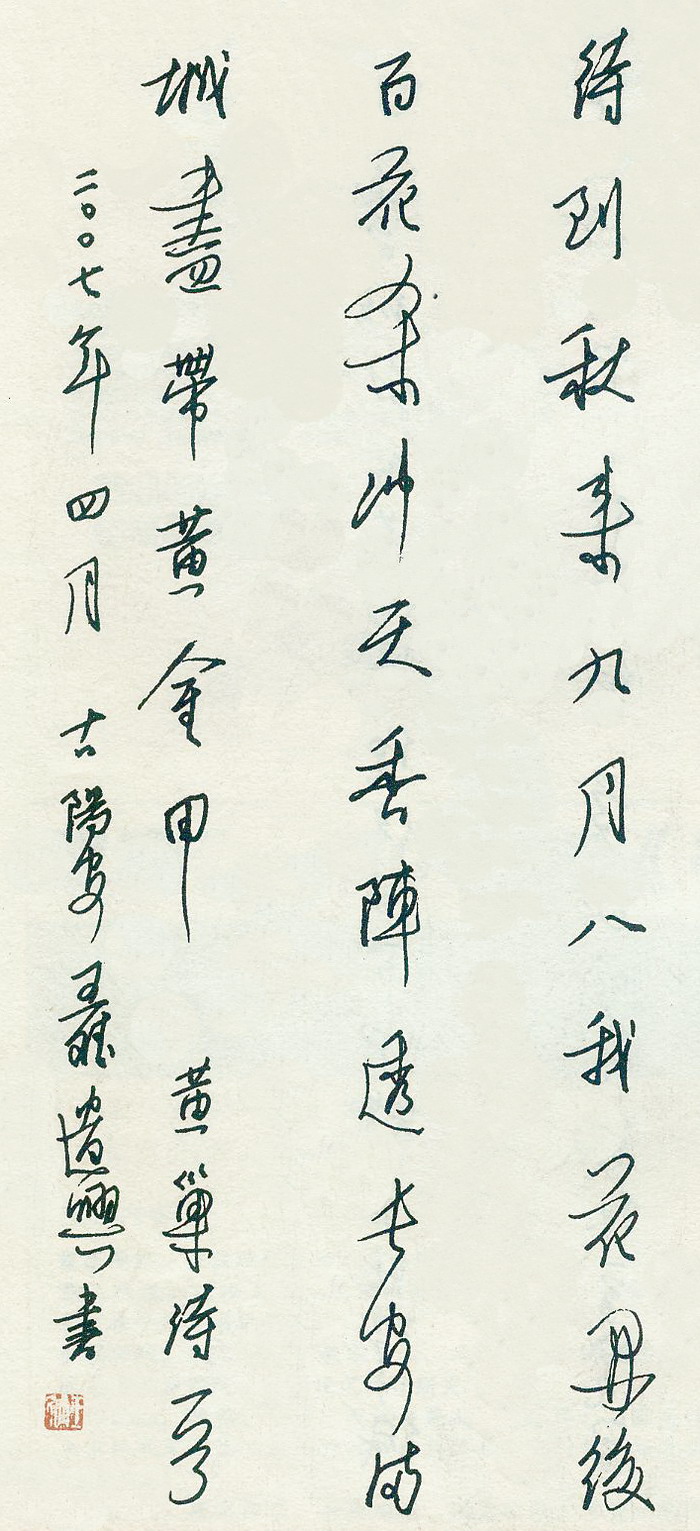 待到秋來九月八我花開後
百花殺冲天香陣透長安滿
城盡帶黃金甲 黃巢詩一首
二〇〇七年四月 古陽安王遣興書